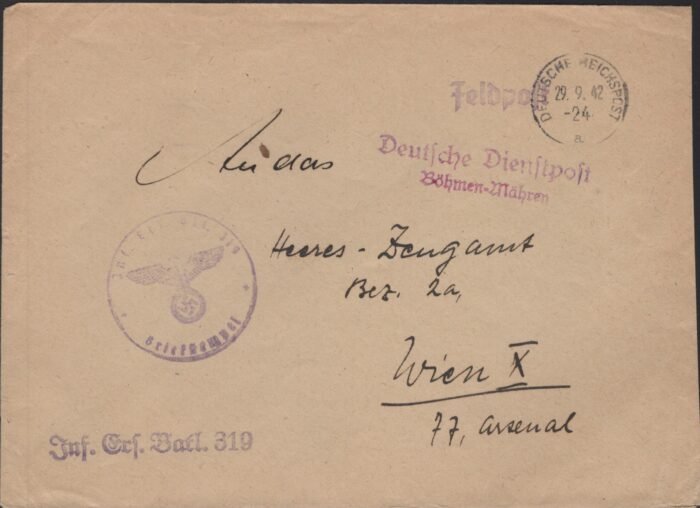 Feldpost
DEUTSCHE REICHSPOST
29. 9. 42
-24
a
An das
Deutsche Dienstpost
Böhmen-Mähren
Inf. Ers. Batl. 319
Briefstempel
Heeres-Zeugamt
Bez. 2a,
Wien X
77, Arsenal
Inf. Ers. Batl. 319